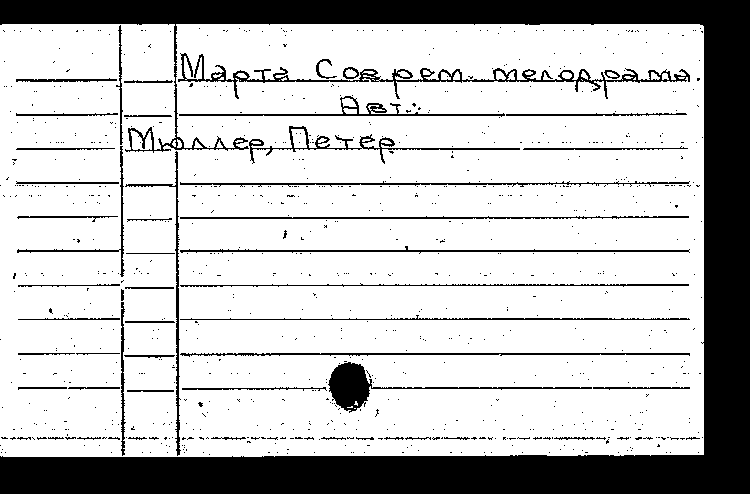 Марта Соврем. мелодрама.
Авт.:
Мюллер, Петер